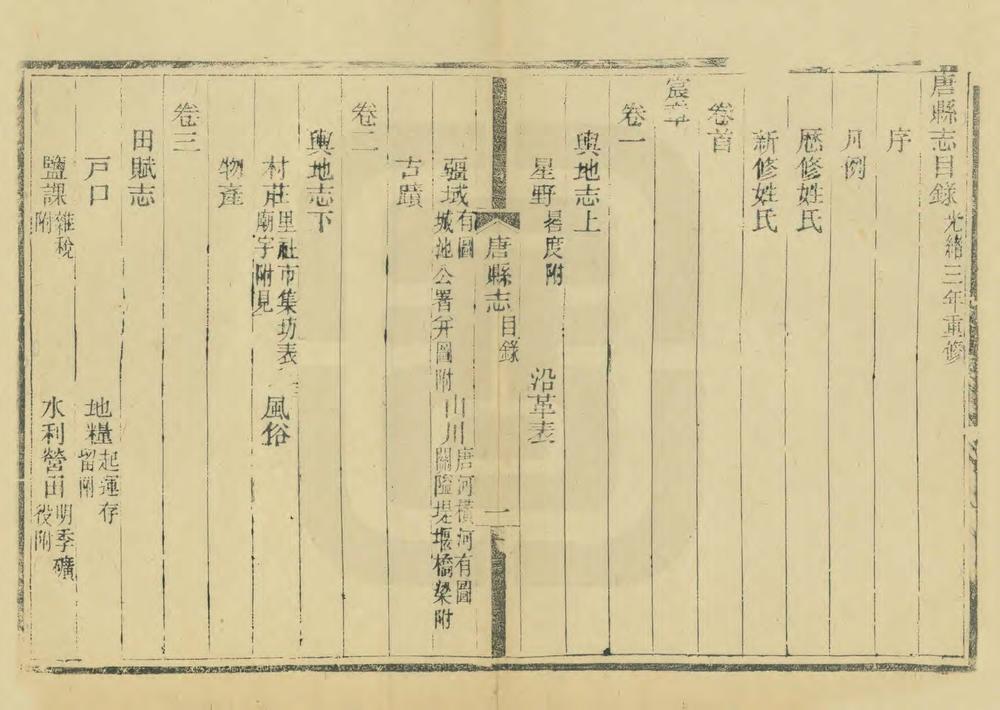 唐縣志目錄 光緒三年重修
序
凡例
歷修姓氏
新修姓氏
卷首
宸章
卷一
輿地志上
星野 晷度附 沿革表
唐縣志 目錄 一
疆域 有圖城池公署并圖附 山川 唐河橫河有圖關隘堤堰橋梁附
古蹟
卷二
輿地志下
村莊 里社市集坊表廟宇附見 風俗
物產
卷三
田賦志
戶口 地糧 起運存留附
鹽課 雜稅附 水利營田 明季礦役附